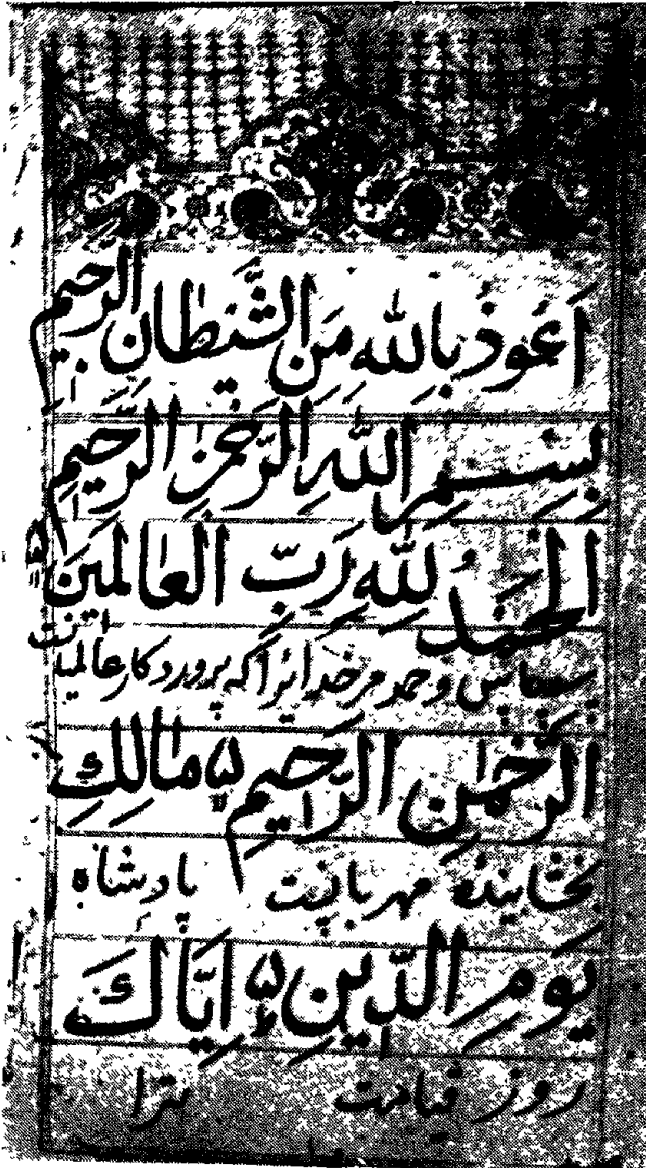 اَعُوذُ بِاللهِ مِنَ الشَّيْطَانِ الرَّجِيمِ
بِسْمِ اللهِ الرَّحْمٰنِ الرَّحِيمِ
الْحَمْدُ لِلهِ رَبِّ الْعَالَمِينَ
سپاس و حمد مر خدایرا که پروردکار عالمیانست
الرَّحْمٰنِ الرَّحِيمِ ۵ مَالِكِ
بخشاینده مهربانیست پادشاه
يَوْمِ الدِّينِ ۵ اِيَّاكَ
روز قیامت ترا